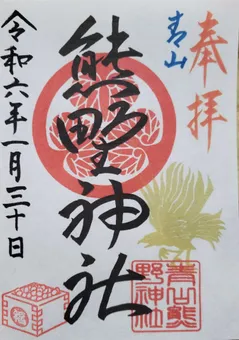 奉拝
青山
熊野神社
青山熊
野神社
令和六年一月三十日